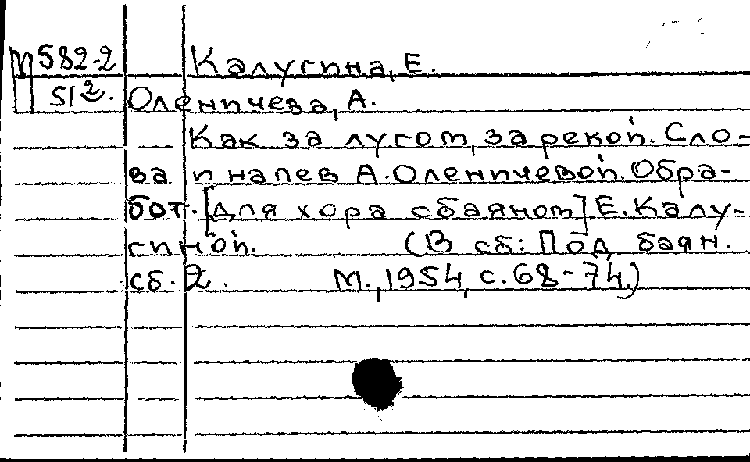 М582-2 Калугина, Е.
51² Оленичева, А.
Как за лугом, за рекой. Сло-
ва и напев А. Оленичевой. Обра-
бот. [для хора с баяном] Е. Калу-
гиной. (В сб: Под баян.
сб. 2. М., 1954, с. 68-74.)